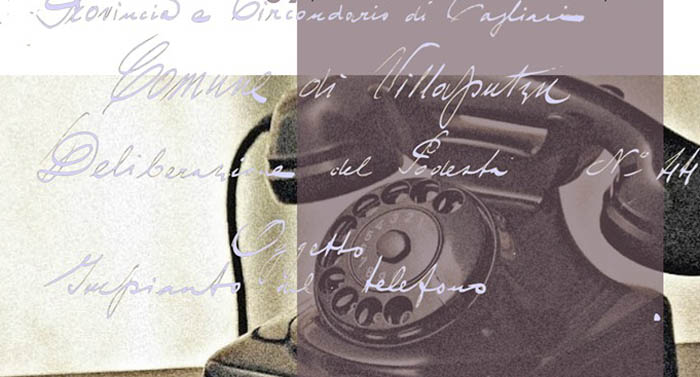 Provincia e Circondario di Cagliari
Comune di Villaputzu
Deliberazione del Podestà N° 44
Oggetto
Impianto del telefono